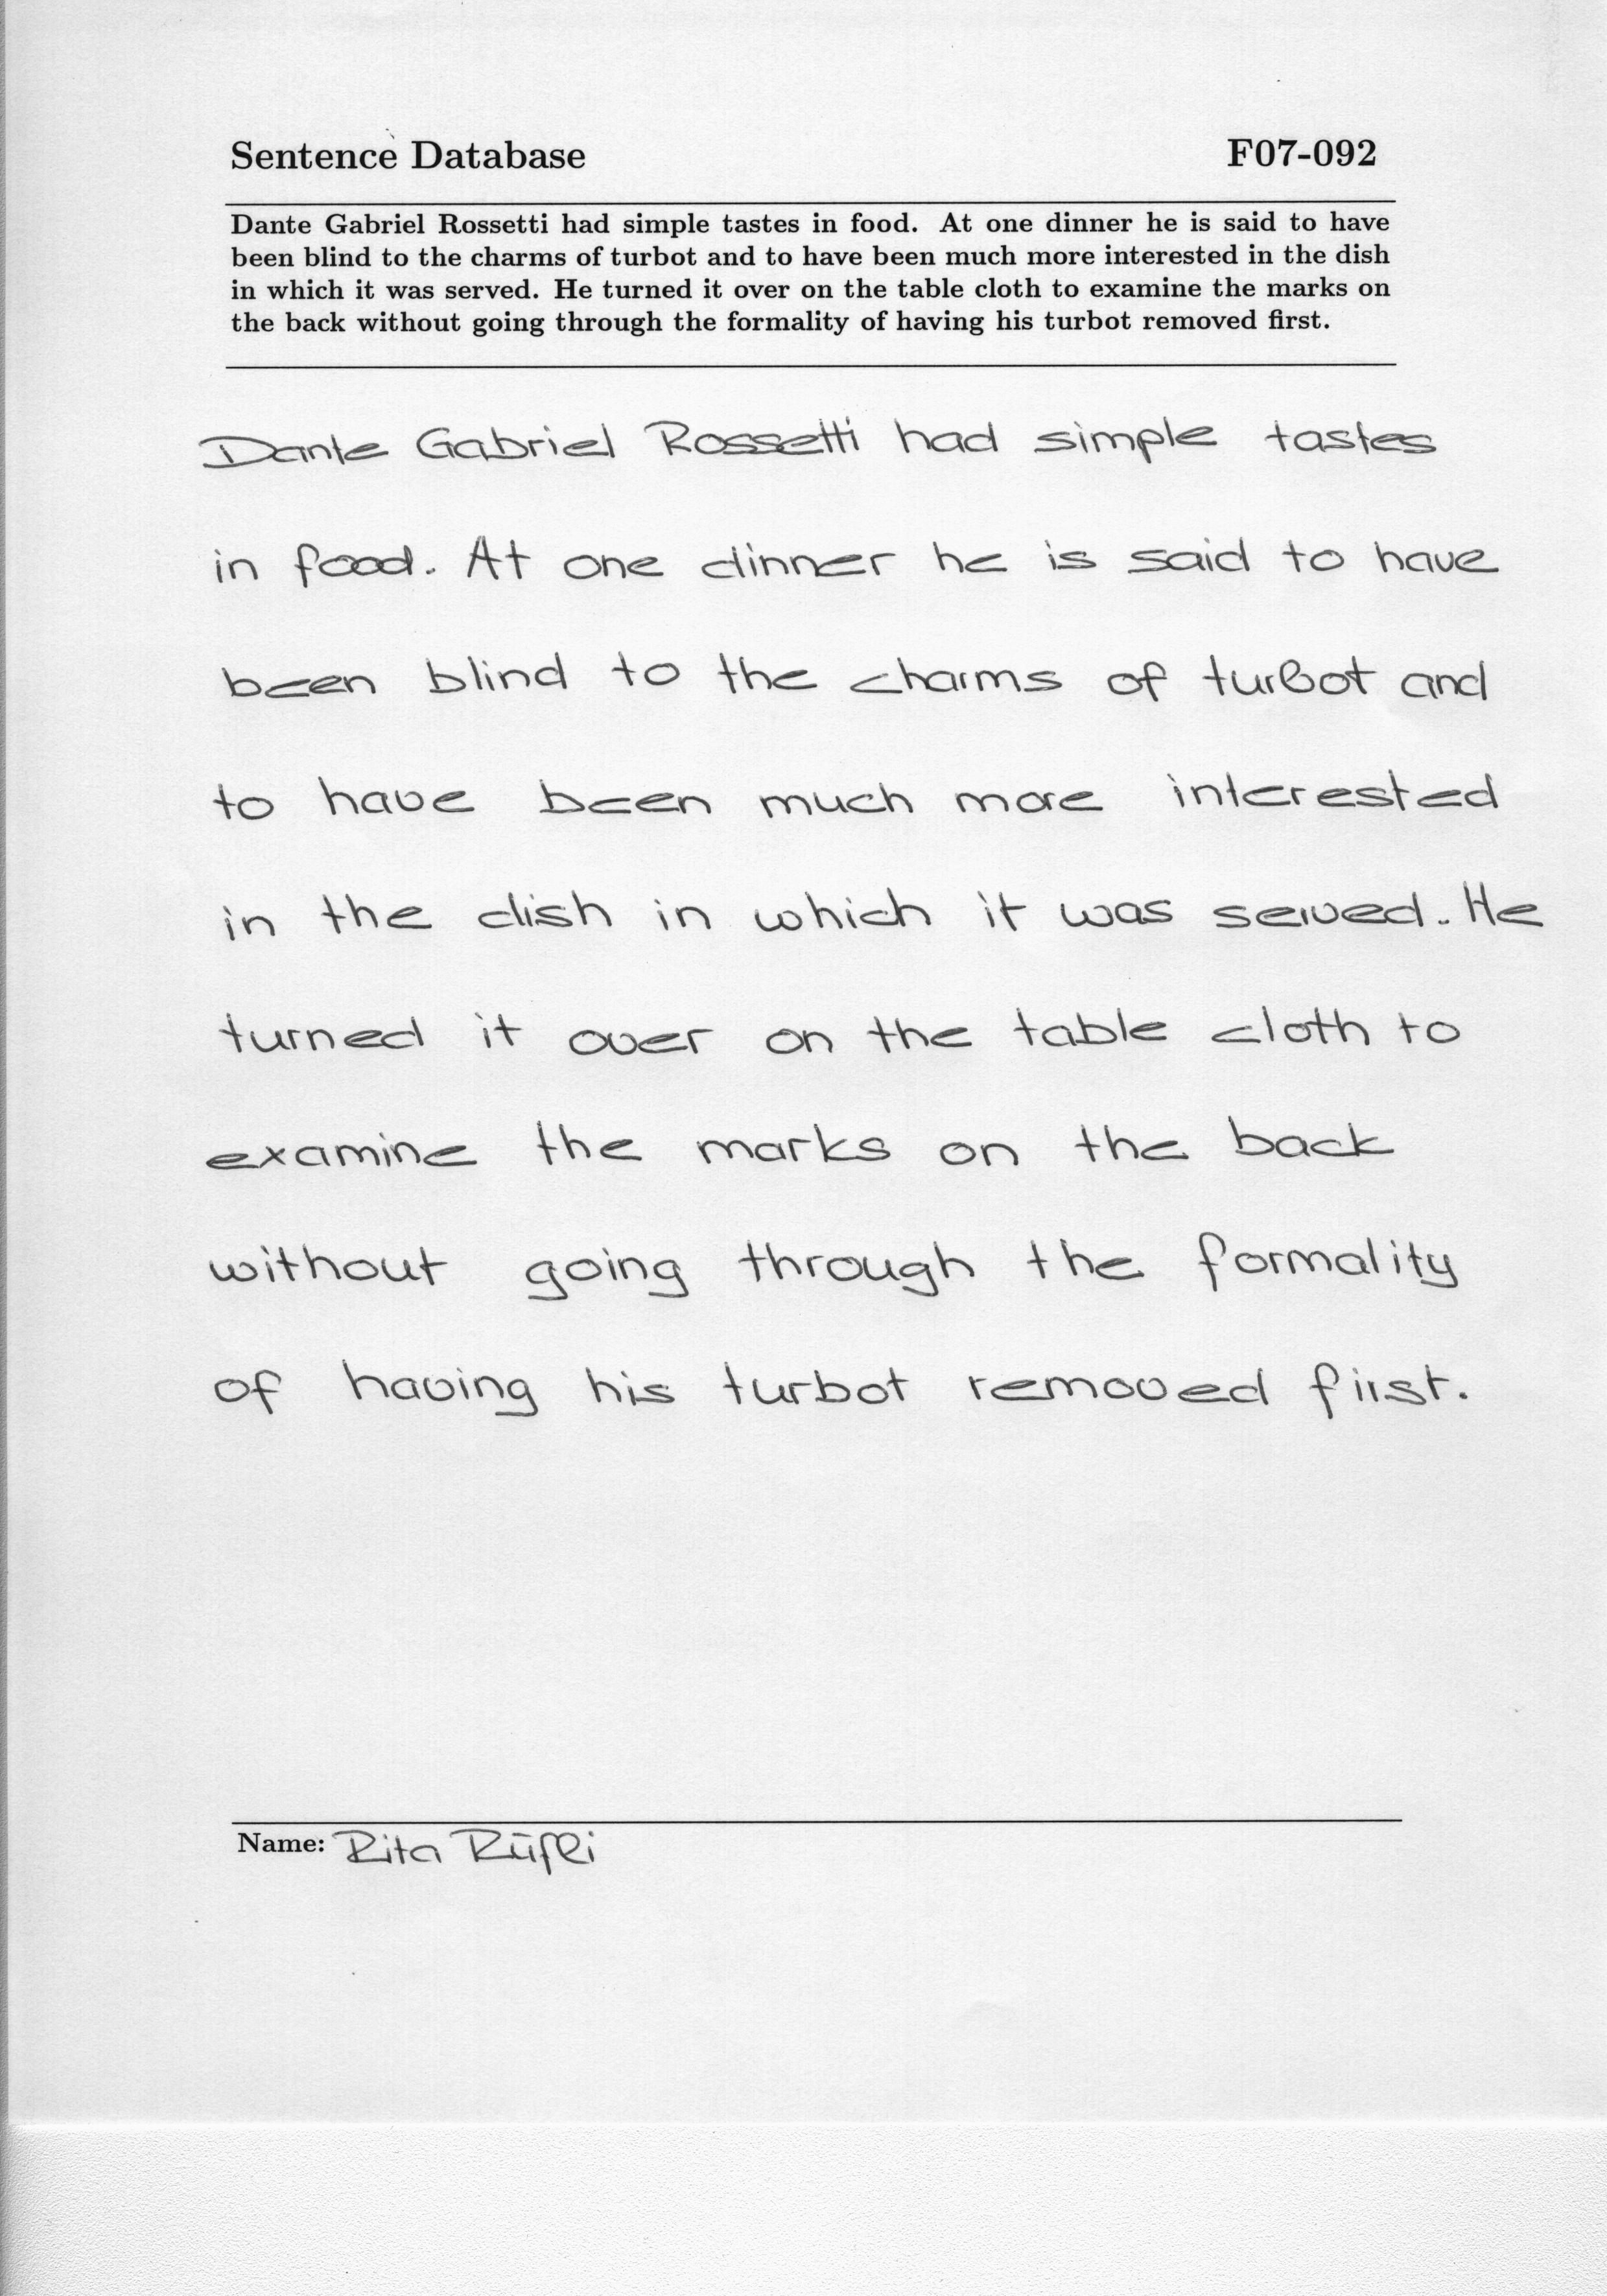 Sentence Database F07-092
Dante Gabriel Rossetti had simple tastes in food. At one dinner he is said to have
been blind to the charms of turbot and to have been much more interested in the dish
in which it was served. He turned it over on the table cloth to examine the marks on
the back without going through the formality of having his turbot removed first.
Dante Gabriel Rossetti had simple tastes
in food. At one dinner he is said to have
been blind to the charms of turbot and
to have been much more interested
in the dish in which it was served. He
turned it over on the table cloth to
examine the marks on the back
without going through the formality
of having his turbot removed first.
Name: Rita Rüfli